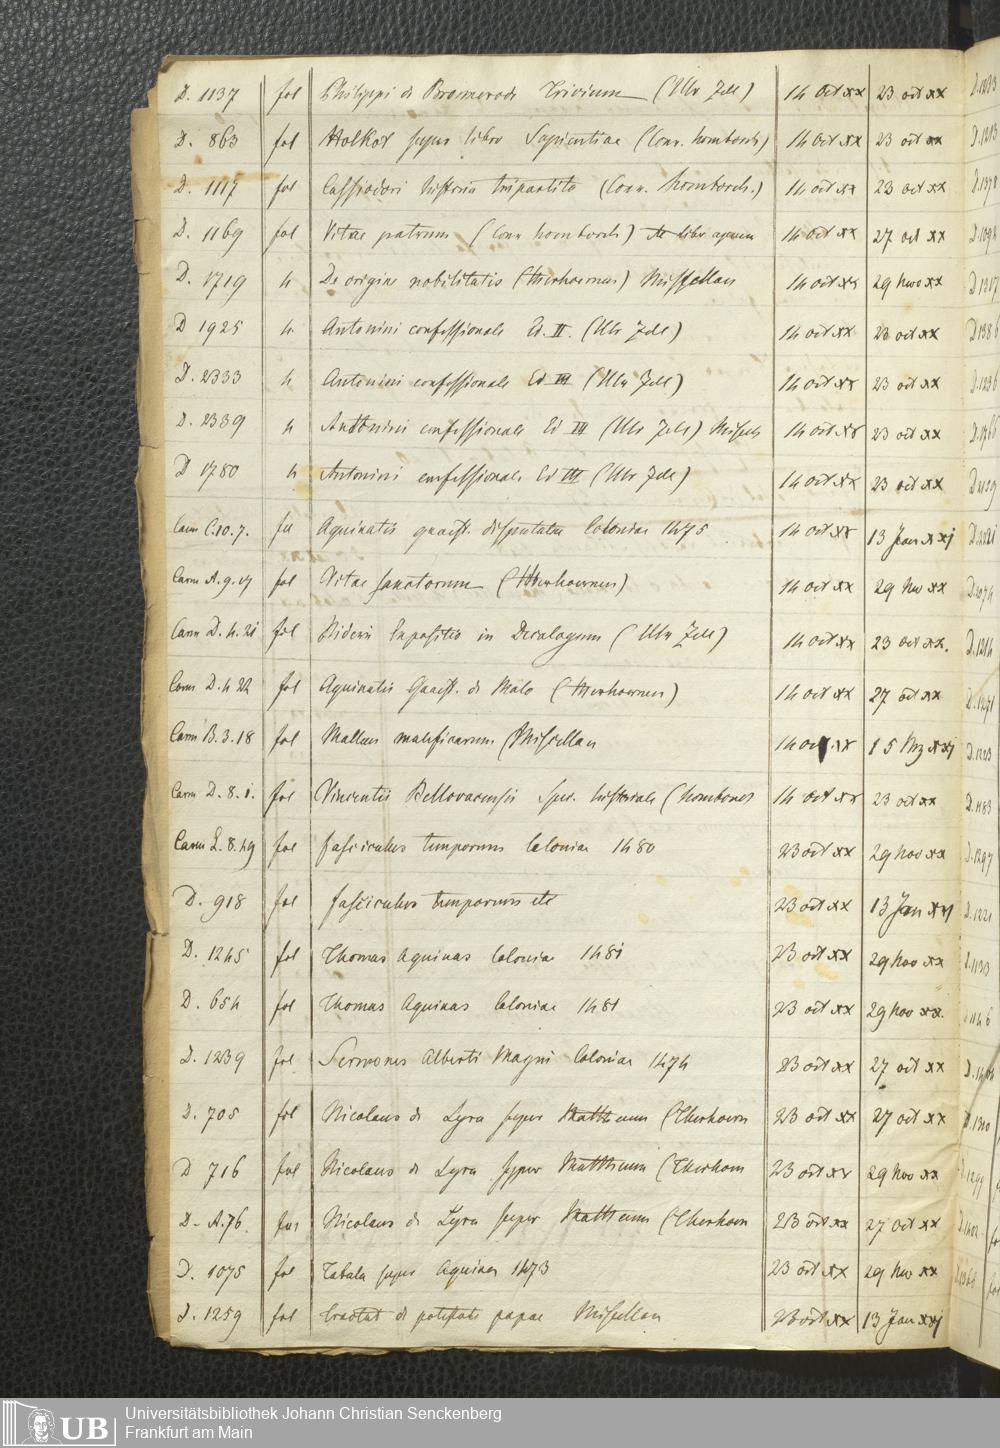 D. 1137 fol Philippi de Bromerode Trivium (Ulr Zell) 14 Oct xx 23 oct xx
D. 863 fol Holkot super libro Sapientiae (Conr. homborch) 14 Oct xx 23 oct xx
D. 1117 fol Cassiodori historia tripartita (Conr. homborch.) 14 oct xx 23 oct xx
D. 1169 fol Vitae patrum (Conr homborch) 14 oct xx 27 oct xx
D. 1719 4 De origine nobilitatis (therhoernen) Miscellan 14 oct xx 29 Nov xx
D 1925 4 Antonini confessionale Ed. II. (Ulr Zell) 14 oct xx 23 oct xx
D. 2333 4 Antonini confessionale Ed III (Ulr Zell) 14 oct xx 23 oct xx
D. 2339 4 Antonini confessionale Ed III (Ulr Zell) Miscell 14 oct xx 23 oct xx
D 1780 4 Antonini confessionale Ed III (Ulr Zell) 14 oct xx 23 oct xx
Carm C. 10. 7. fol Aquinatis quaest. disputatae Coloniae 1475 14 oct xx 13 Jan xxj
Carm A. 9. fol Vitae sanctorum (therhoernen) 14 oct xx 29 Nov xx
Carm D. 4. 21 fol Nideri Expositio in Decalogum (Ulr Zell) 14 oct xx 23 oct xx.
Carm D. 4 22 fol Aquinatis Quaest. de Malo (therhoernen) 14 oct xx 27 oct xx
Carm B. 3. 18 fol Malleus maleficarum (Miscellan 14 oct xx 15 Mz xxj
Carm D. 8. i. fol Vincentii Bellovacensis Spec. historiale (homborch 14 oct xx 23 oct xx
Carm L. 8. 49 fol fasciculus temporum Coloniae 1480 23 oct xx 29 Nov xx
D. 918 fol fasciculus temporum etc 23 oct xx 13 Jan xxj
D. 1245 fol Thomas Aquinas Coloniae 1481 23 oct xx 29 Nov xx
D. 654 fol Thomas Aquinas Coloniae 1481 23 oct xx 29 Nov xx.
D. 1239 fol Sermones Alberti Magni Coloniae 1474 23 oct xx 27 oct xx
D. 705 fol Nicolaus de Lyra super Matthaeum (Therhoern 23 oct xx 27 oct xx
D 716 fol Nicolaus de Lyra super Matthaeum (Therhoern 23 oct xx 29 Nov xx
D- A. 76. fol Nicolaus de Lyra super Matthaeum (Therhoern 23 oct xx 27 Oct xx
D. 1075 fol Tabula super Aquinas 1473 23 oct xx 29 Nov xx
D. 1259 fol Tractat de potestate papae Miscellan 23 oct xx 13 Jan xxj
UB Universitätsbibliothek Johann Christian Senckenberg
Frankfurt am Main